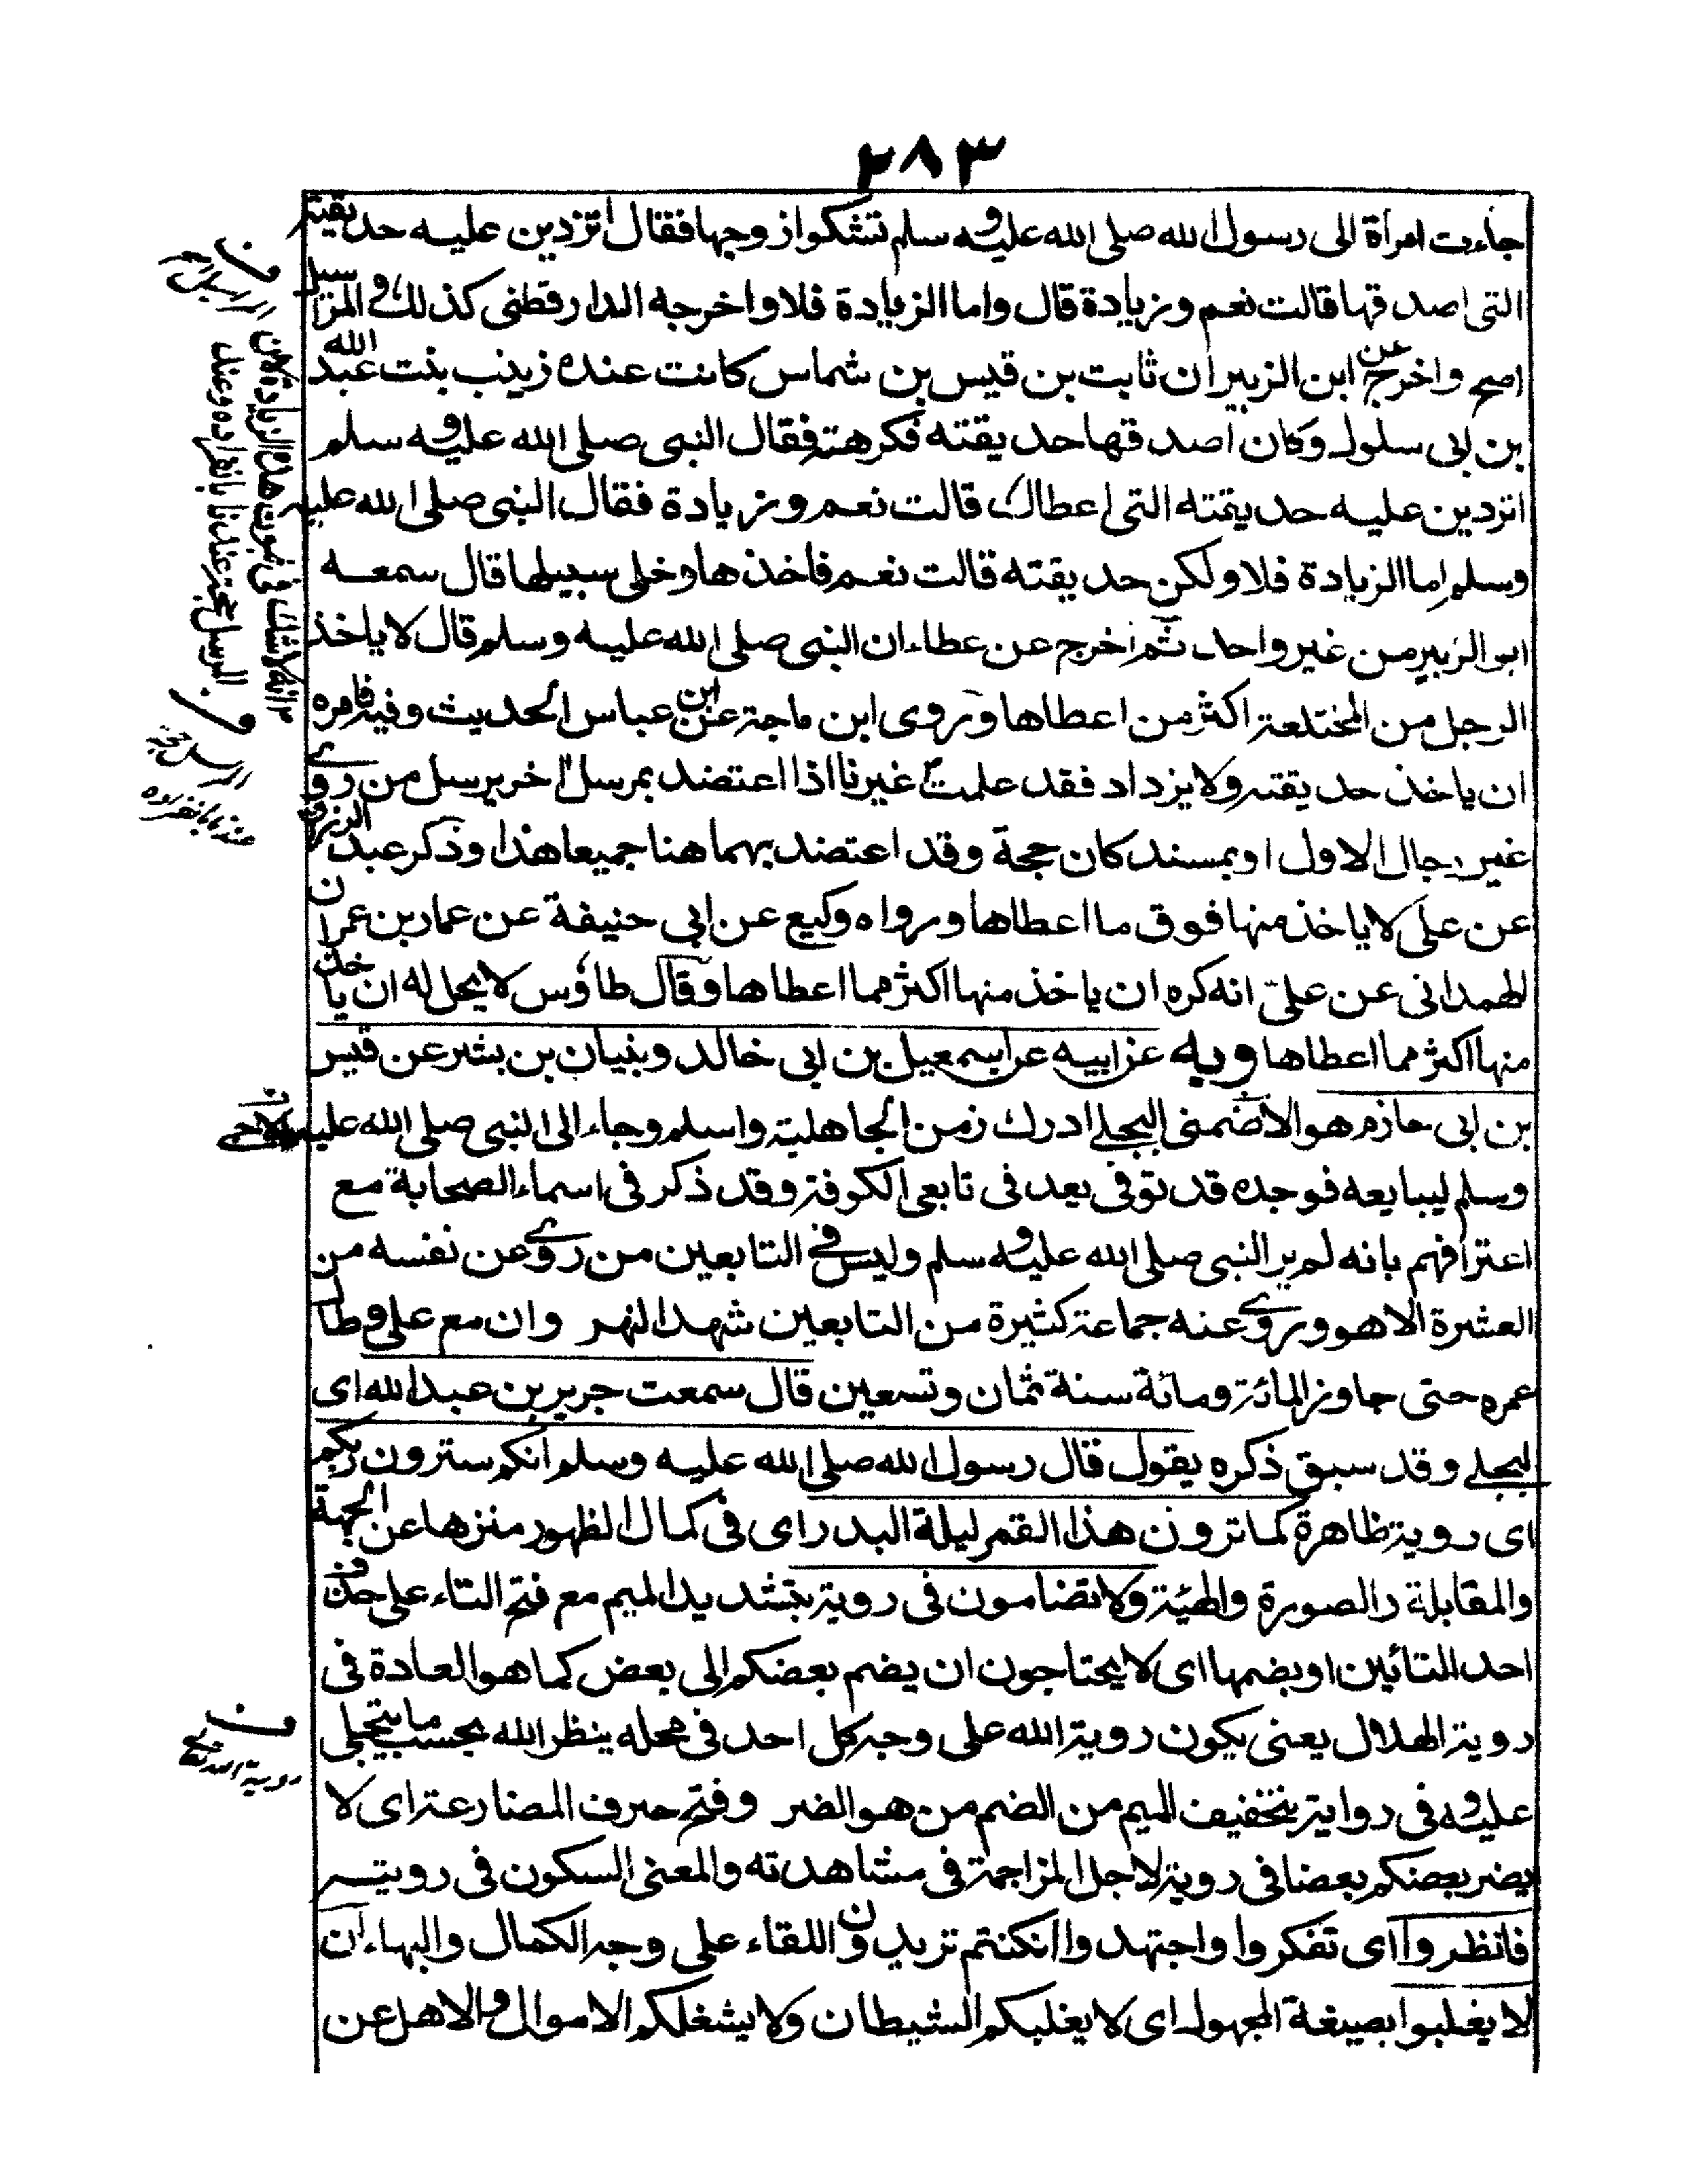 ٢٨٣
جاءت امرأة الى رسول الله صلى الله عليه وسلم تشكو ا زوجها فقال اتزدين عليه حديقته
التى اصدقها قالت نعم وزيادة قال واما الزيادة فلا واخرجه الدارقطنى كذلك والمراسيل
اصح واخرج عن ابن الزبير ان ثابت بن قيس بن شماس كانت عنده زينب بنت عبد الله
بن ابى سلول وكان اصدقها حديقته فكرهته فقال النبى صلى الله عليه وسلم
اتردين عليه حديقته التى اعطاك قالت نعم وزيادة فقال النبى صلى الله عليه
وسلم اما الزيادة فلا ولكن حديقته قالت نعم فاخذها وخلى سبيلها قال سمعه
ابو الزبير من غير واحد ثم اخرج عن عطاء ان النبى صلى الله عليه وسلم قال لا ياخذ
الرجل من المختلعة اكثر من اعطاها وروى ابن ماجة عن ابن عباس الحديث وفيه فامره
ان ياخذ حديقته ولا يزداد فقد علمت غيرنا اذا اعتضد بمرسل اخر يرسل من روى
غير رجال الاول او بمسند كان حجة وقد اعتضد بهما هنا جميعا هذا وذكر عبد الرزاق
عن على لا ياخذ منها فوق ما اعطاها ورواه وكيع عن ابى حنيفة عن عمار بن عمران
الهمدانى عن على انه كره ان ياخذ منها اكثر مما اعطاها وقال طاوس لا يحل له ان ياخذ
منها اكثر مما اعطاها وبه عن ابيه عن اسمعيل بن ابى خالد وبنيان بن بشر عن قيس
بن ابى حازم هو الاضمنى البجلى ادرك زمن الجاهلية واسلم وجاء الى النبى صلى الله عليه
وسلم ليبايعه فوجده قد توفى يعد فى تابعى الكوفة وقد ذكر فى اسماء الصحابة مع
اعترافهم بانه لم ير النبى صلى الله عليه وسلم وليس فى التابعين من روى عن نفسه من
العشرة الا هو وروى عنه جماعة كثيرة من التابعين شهد النهر وان مع على وطال
عمره حتى جاوز المائة ومائة سنة ثمان وتسعين قال سمعت جرير بن عبد الله اى
البجلى وقد سبق ذكره يقول قال رسول الله صلى الله عليه وسلم انكم سترون ربكم
اى روية ظاهرة كما ترون هذا القمر ليلة البدر اى فى كمال الظهور منزها عن الجهة
والمقابلة رالصورة والهيئة ولا تضامون فى روية بتشديد الميم مع فتح التاء على حذف
احد التائين او بضمها اى لا يحتاجون ان يضم بعضكم الى بعض كما هو العادة فى
روية الهلال يعنى يكون روية الله على وجه كل احد فى محله ينظر الله بحسب ما يتجلى
عليه وفى رواية بتخفيف الميم من الضم من هو الضر وفتح حرف المضارعة اى لا
يضر بعضكم بعضا فى روية لاجل المزاجمة فى مشاهدته والمعنى السكون فى رويته
فانظروا اى تفكروا واجتهدوا ان كنتم تريدون اللقاء على وجه الكمال والبهاء ان
لا يغلبوا بصيغة المجهول اى لا يغلبكم الشيطان ولا يشغلكم الاموال والاهل عن
ف
انه لا شك فى ثبوت هذه الزيادة لان
المرسل حجة عندنا بانفراده وعند
ف
المرسل حجة
عندنا بانفراده
الاحمسى
ف
روية الله تعالى